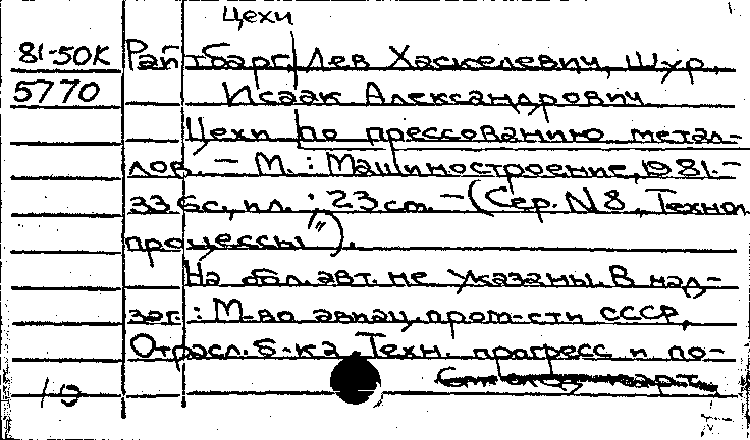 Цехи
81-50К Райтбарг, Лев Хаскелевич, Шур,
5770 Исаак Александрович
Цехи по прессованию метал-
лов. – М. : Машиностроение, 1981. –
336с., ил. : 23см. – (Сер. N8 „Технол.
процессы").
На обл. авт. не указаны. В над-
заг.: М-во авиац. пром-сти СССР,
Отрасл. б-ка „Техн. прогресс и по-
10